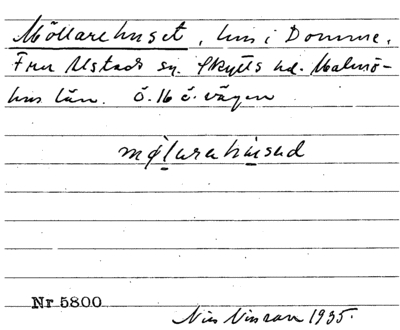 Möllarehuset, hus i Domme,
Fru Alstads sn. Skytts hd. Malmö-
hus län. ö. 16 ö. vägen
mølarahused
Nr 5800
Nils Nilsson 1935.